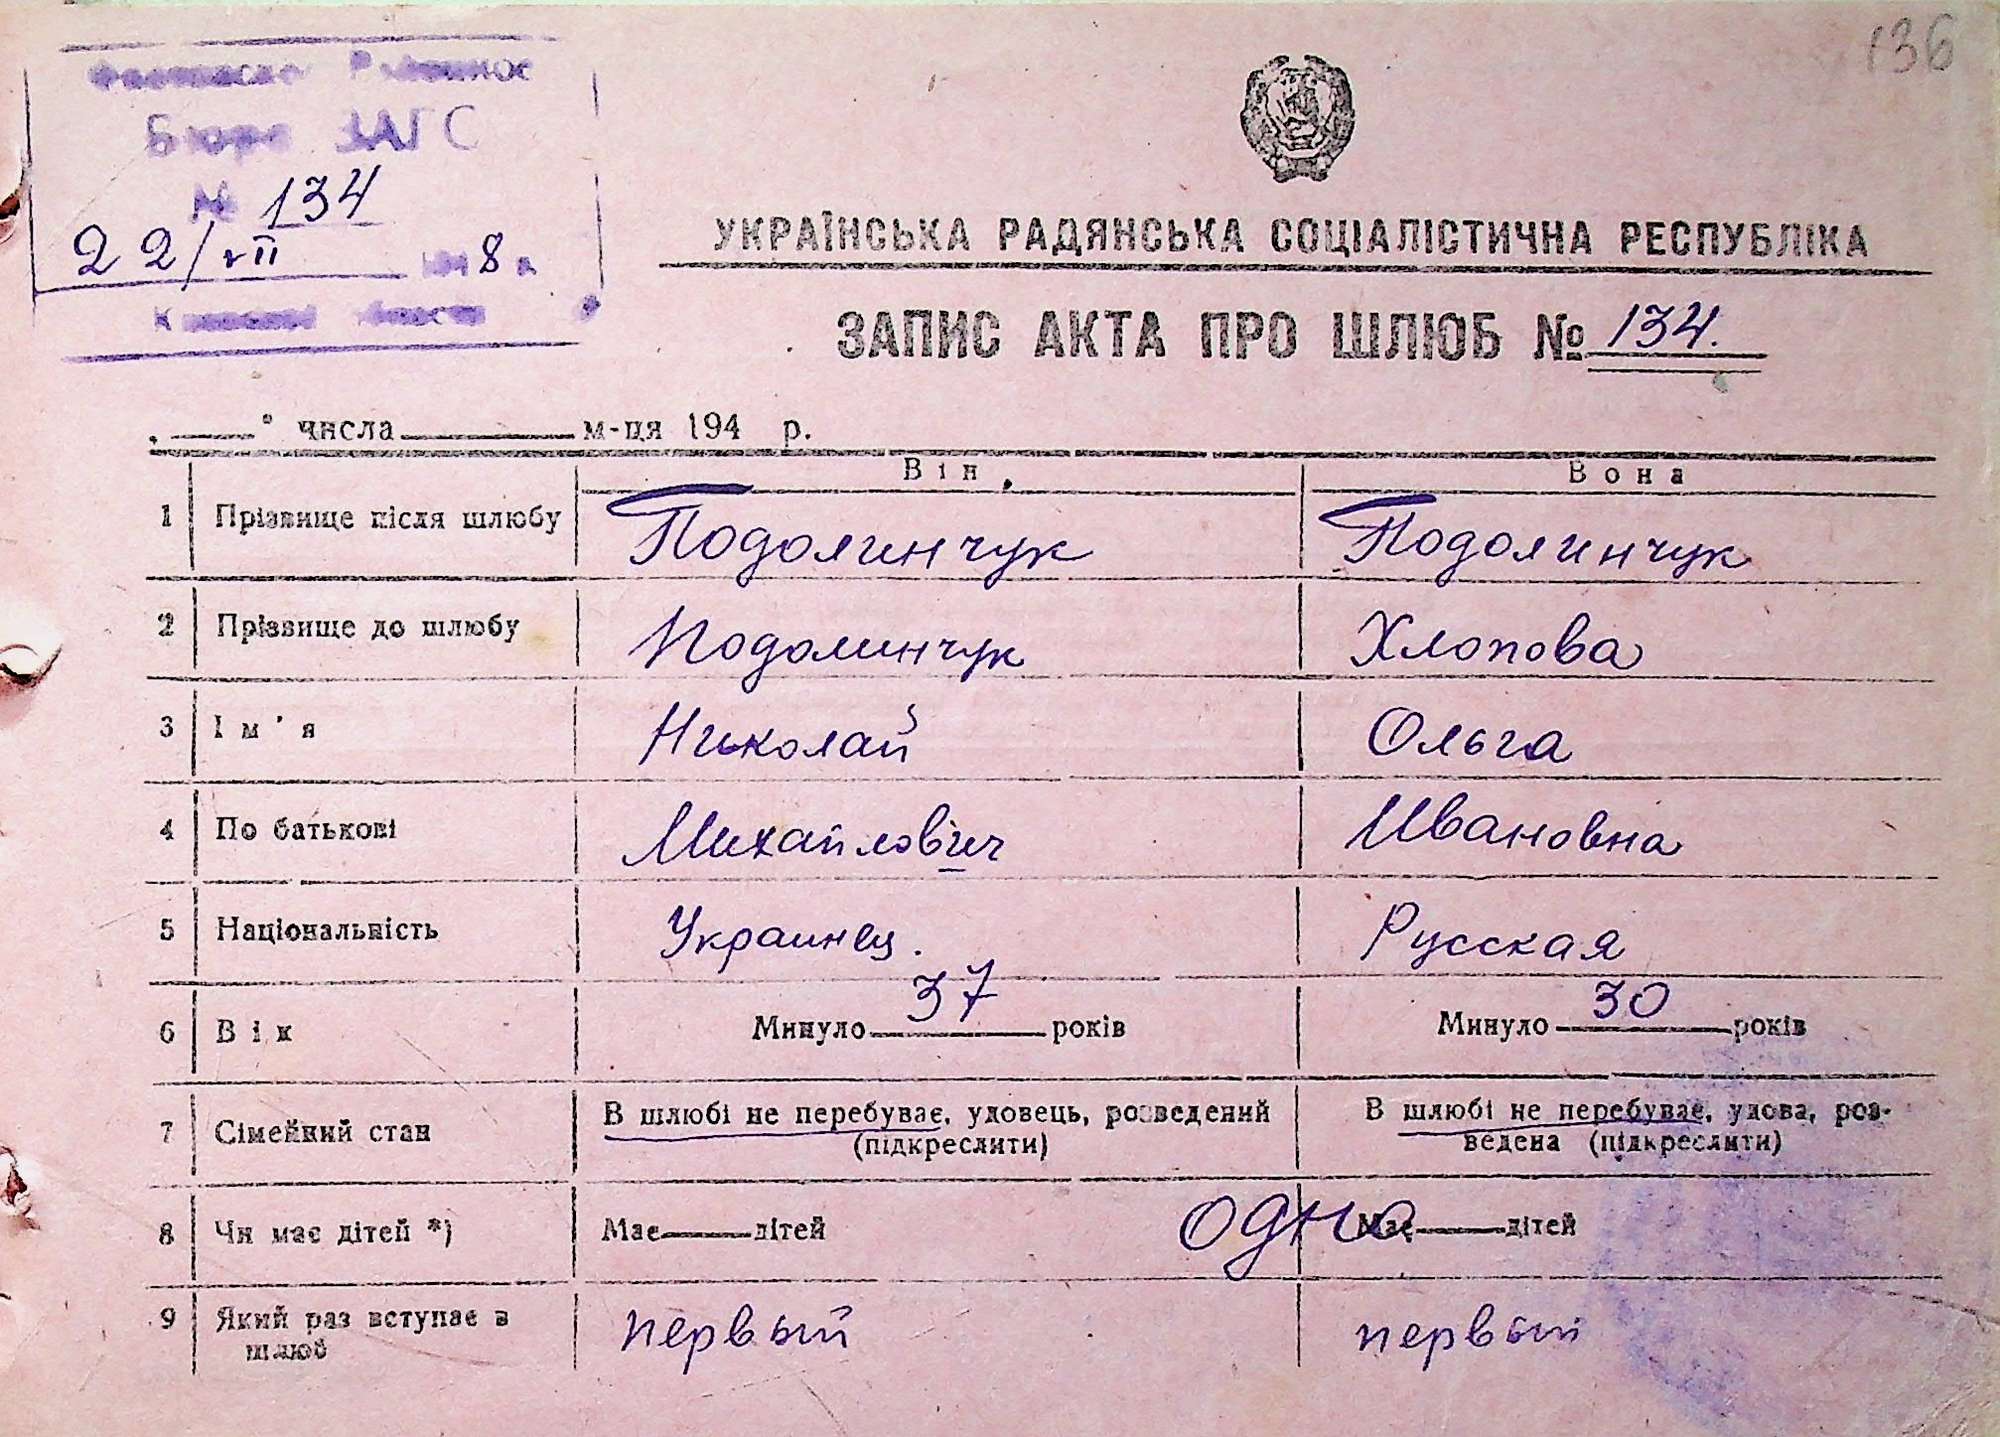 136
Бюро ЗАГС
№ 134
22/VII 1948 г.
УКРАЇНСЬКА РАДЯНСЬКА СОЦІАЛІСТИЧНА РЕСПУБЛІКА
ЗАПИС АКТА ПРО ШЛЮБ № 134.
„ " числа м-ця 194 р.
Він Вона
1 Прізвище після шлюбу Подолинчук Подолинчук
2 Прізвище до шлюбу Подолинчук Хлопова
3 Ім'я Николай Ольга
4 По батькові Михайлович Ивановна
5 Національність Украинец. Русская
6 Вік Минуло 37 років Минуло 30 років
7 Сімейний стан В шлюбі не перебуває, удовець, розведений (підкреслити) В шлюбі не перебуває, удова, роз-
ведена (підкреслити)
8 Чи має дітей *) Має дітей одно Має дітей
9 Який раз вступає в шлюб первый первый